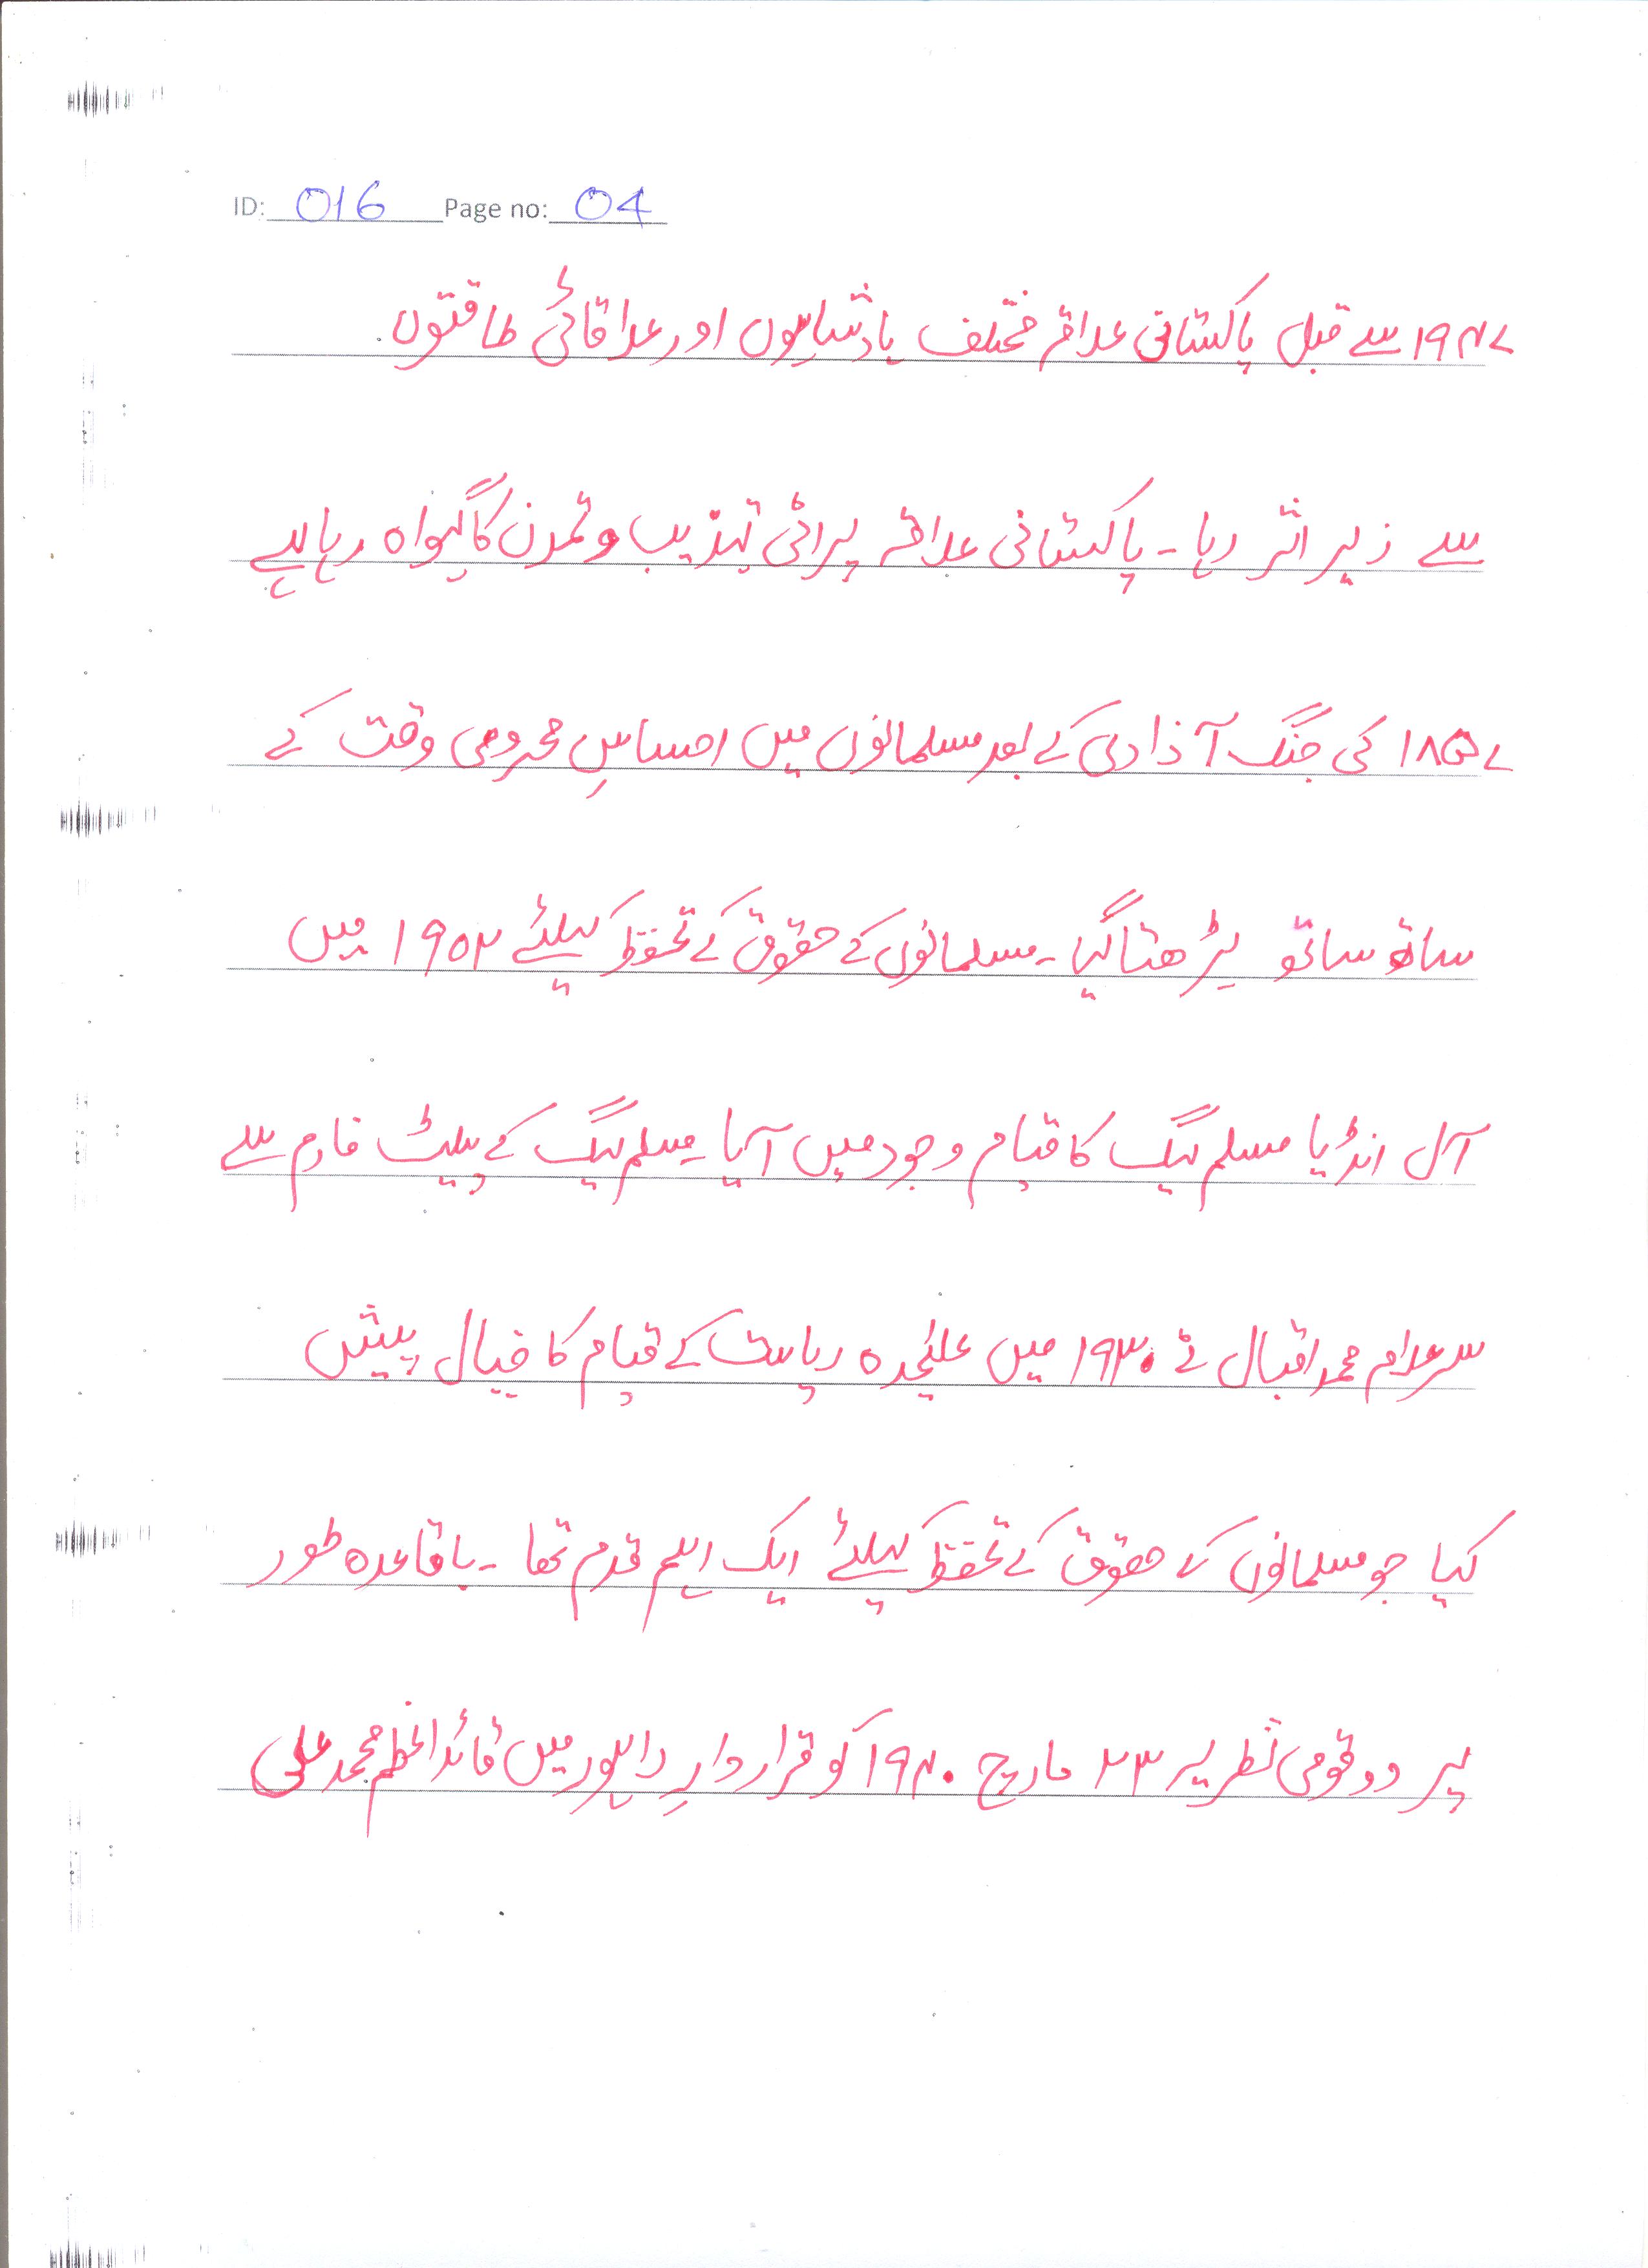 ID: 016 Page no: 04
۱۹۴۷ سے قبل پاکستانی علاقہ مختلف بادشاہوں اور علاقائی طاقتوں
سے زیر اثر رہا۔ پاکستانی علاقہ پرانی تہذیب و تمدن کا گہواہ رہا ہے
۱۸۵۷ کی جنگ آذادی کے بعد مسلمانوں میں احساسِ محرومی وقت کے
ساتھ ساتھ بڑھتا گیا۔ مسلمانوں کے حقوق کے تحفظ کیلئے ۱۹۰۴ میں
آل انڈیا مسلم لیگ کا قیام وجود میں آیا۔ مسلم لیگ کے پلیٹ فارم سے
سر علامہ محمد اقبال نے ۱۹۳۰ میں علیٰحدہ ریاست کے قیام کا خیال پیش
کیا جو مسلمانوں کے حقوق کے تحفظ کیلئے ایک اہم قدم تھا۔ باقاعدہ طور
پر دو قومی نظریہ ۲۳ مارچ ۱۹۴۰ کو قرار دارِ لاہور میں قائد اعظم محمد علی